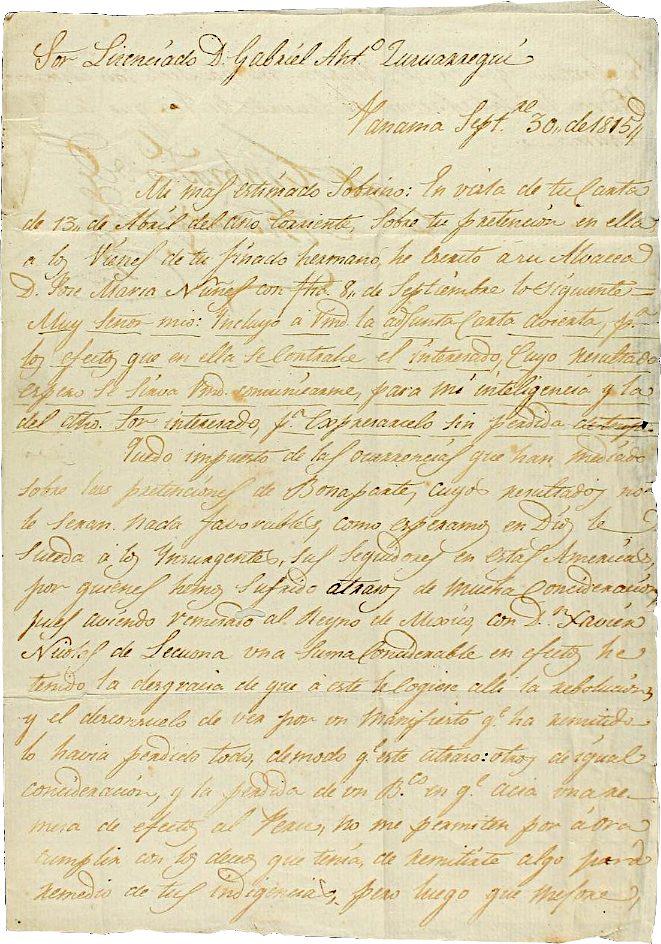 Sor Licenciado D. Gabriel Ant.º Yuruarregui
Panama Sept.re 30,, de 1815,,
Mi mas estimado Sobrino: En vista de tu Carta
de 13,, de Abril del año Corriente, sobre tu pretención en ella
a los Vienes de tu finado hermano, he escrito a su Alvacea
D. Jose Maria Nuñes con fha. 8,, de Septiembre lo siguiente=
Muy Señor mio: Incluyo a Vmd. la adjunta Carta avierta, p.a
los efectos que en ella se Contrahe el interesado, Cuyo resultado
espero se sirva Vmd. comunicarme, para mi inteligencia y la
del dho. Sor interesado, p.a expresarcelo sin perdida
Quedo impuesto de las ocurrencias que han mediado
sobre las pretenciones de Bonaparte, cuyos resultados no
le seran nada favorables, como esperamos en Dios le
suseda a los Insurgentes, sus seguidores en estas Americas,
por quienes hemos sufrido atrasos de mucha Concideración
pues aviendo remitido al Reyno de Mexico, con D.n Xavier
Nicoles de Lecuona vna suma Considerable en efectos he
tenido la desgracia de que a este le cogiese alli la rebolución,
y el desconsuelo de ver por vn manifiesto q.e ha remitido
lo havia perdido todo, de modo q.e este atraso: otros de igual
concideración, y la perdida de vn B.co en q.e acia vna re-
mesa de efectos al Peru, no me permiten por aóra
cumplir con los deceos que tenia, de remitirte algo para
remedio de tus indigencias, pero luego que mejore,